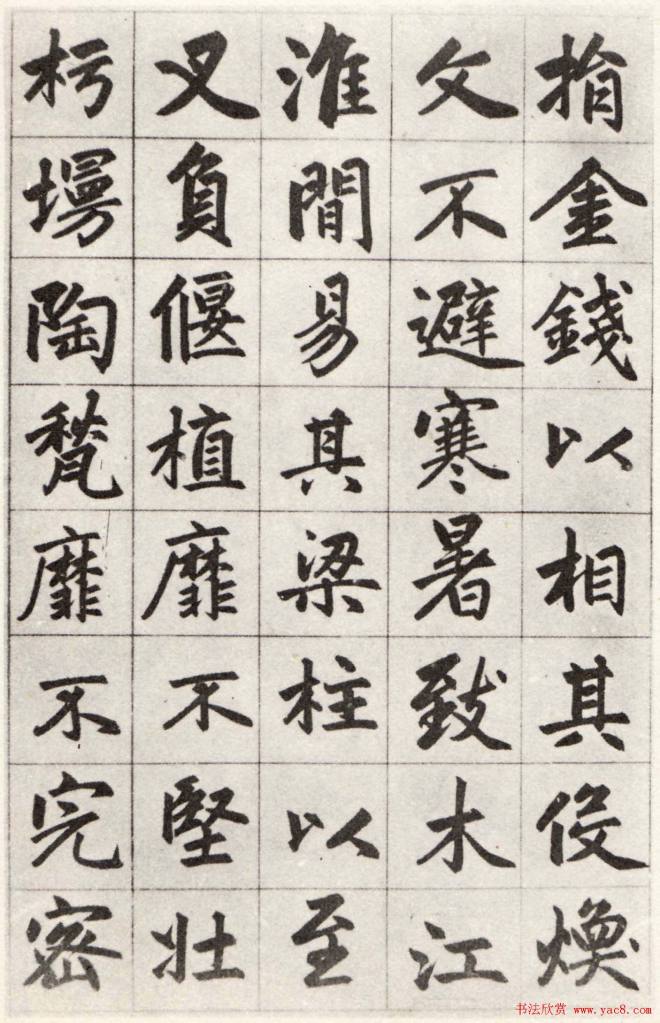 捐金錢以相其役煥
文不避寒暑致木江
淮間易其梁柱以至
叉負偃植靡不堅壯
杇墁陶甃靡不完密
书法欣赏 www.yac8.com